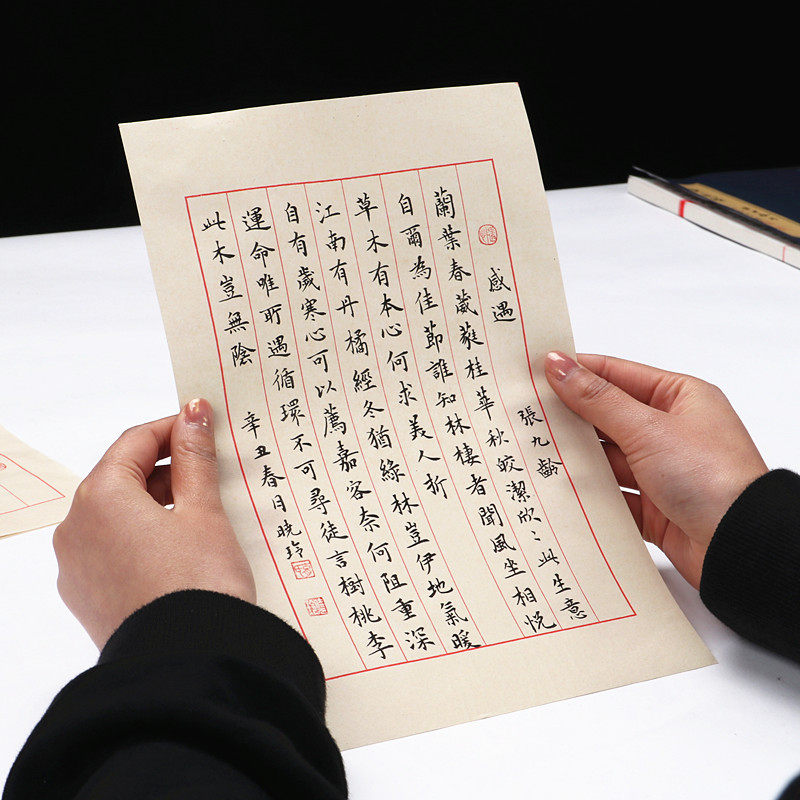 感遇 張九齡
蘭葉春葳蕤桂華秋皎潔欣〻此生意
自爾為佳節誰知林棲者聞風坐相悅
草木有本心何求美人折
江南有丹橘經冬猶綠林豈伊地氣暖
自有歲寒心可以薦嘉客奈何阻重深
運命唯所遇循環不可尋徒言樹桃李
此木豈無陰 辛丑春日晓玲